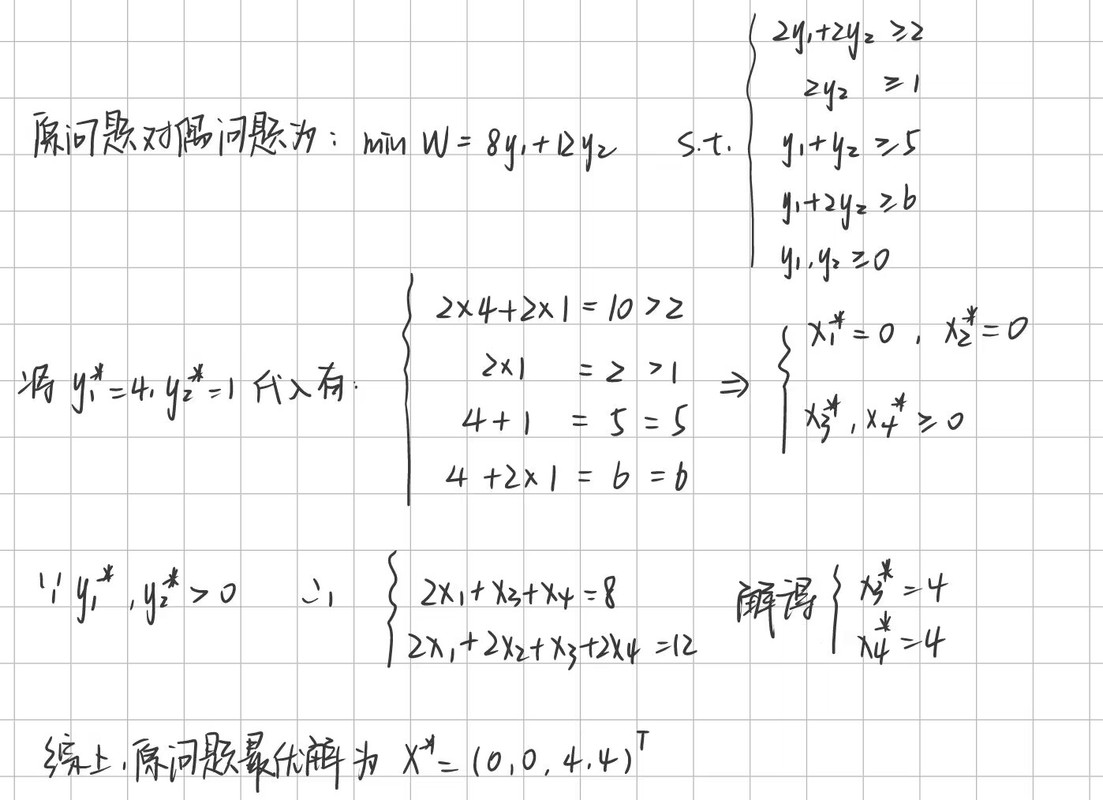 原问题对偶问题为: min W = 8y₁+12y₂ s.t. { 2y₁+2y₂ ≥2
2y₂ ≥1
y₁+y₂ ≥5
y₁+2y₂ ≥6
y₁,y₂ ≥0
将 y₁*=4, y₂*=1 代入有: { 2×4+2×1 = 10 >2
2×1 = 2 >1
4+1 = 5 = 5
4+2×1 = 6 = 6
⇒ { x₁*=0, x₂*=0
x₃*, x₄* ≥0
∵ y₁*, y₂* >0 ∴ { 2x₁+x₃+x₄=8
2x₁+2x₂+x₃+2x₄=12
解得 { x₃*=4
x₄*=4
综上,原问题最优解为 X*=(0,0,4,4)ᵀ